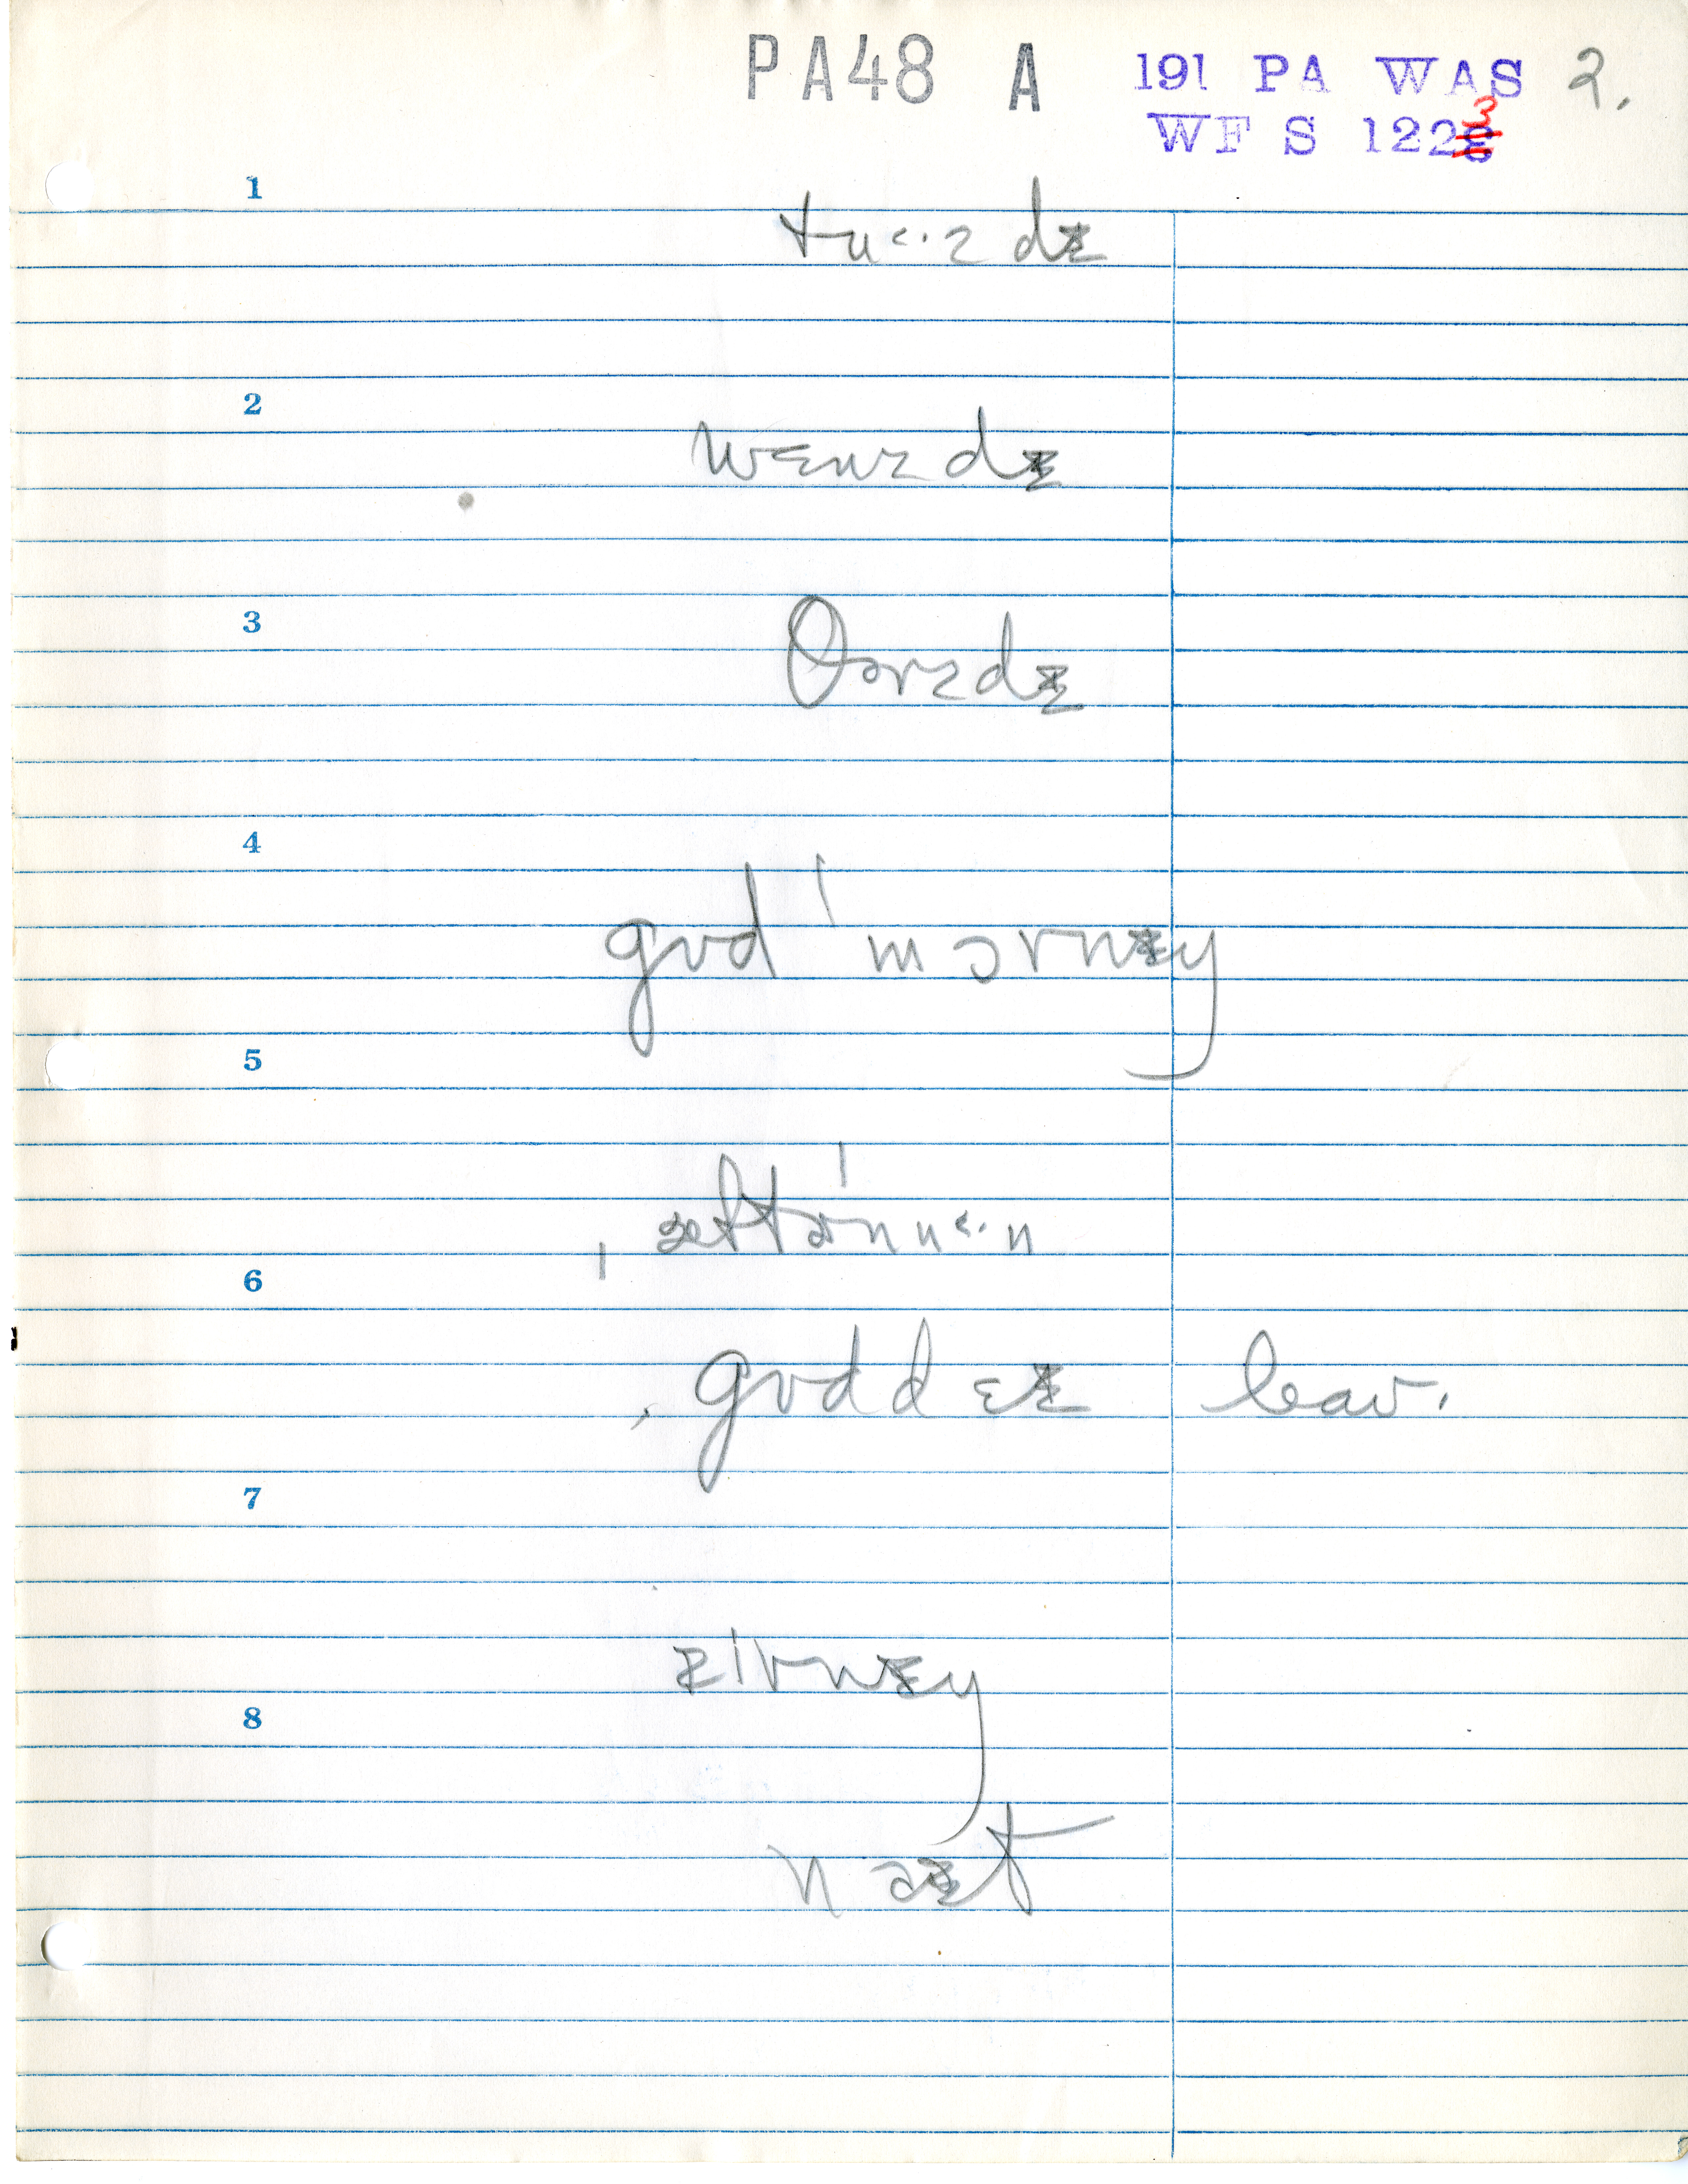 PA48 A 191 PA WAS 2.
WF S 1223
1
tu<·zdɪ
2
wɛnzdɪ
3
θɜrzdɪ
4
gʊd ˈmɔrnɪŋ
5
ˌæftɚˈnu<·n
6
ˌgʊddɛɪ leav.
7
ɪvnɪŋ
8
naɪt